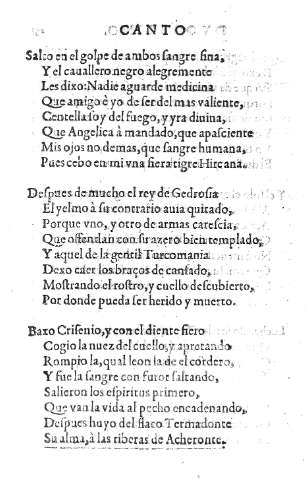 CANTO
Salto en el golpe de ambos sangre fina,
Y el cauallero negro alegremente
Les dixo: Nadie aguarde medicina
Que amigo è yo de ser del mas valiente,
Centella soy del fuego, y yra diuina,
Que Angelica à mandado, que apasciente
Mis ojos no demas, que sangre humana,
Pues cebo en mi vna fiera tigre Hircana.
Despues de mucho el rey de Gedrosia
El yelmo a su contrario auia quitado,
Porque vno, y otro de armas carescia,
Que ofendan con su azero bien templado,
Y aquel de la gentil Turcomania
Dexo caer los braços de cansado,
Mostrando el rostro, y cuello descubierto,
Por donde pueda ser herido y muerto.
Baxo Crisenio, y con el diente fiero
Cogio la nuez del cuello, y apretando
Rompio la, qual leon la de el cordero,
Y fue la sangre con furor saltando,
Salieron los espiritus primero,
Que van la vida al pecho encadenando,
Despues huyo del flaco Termadonte
Su alma, à las riberas de Acheronte.